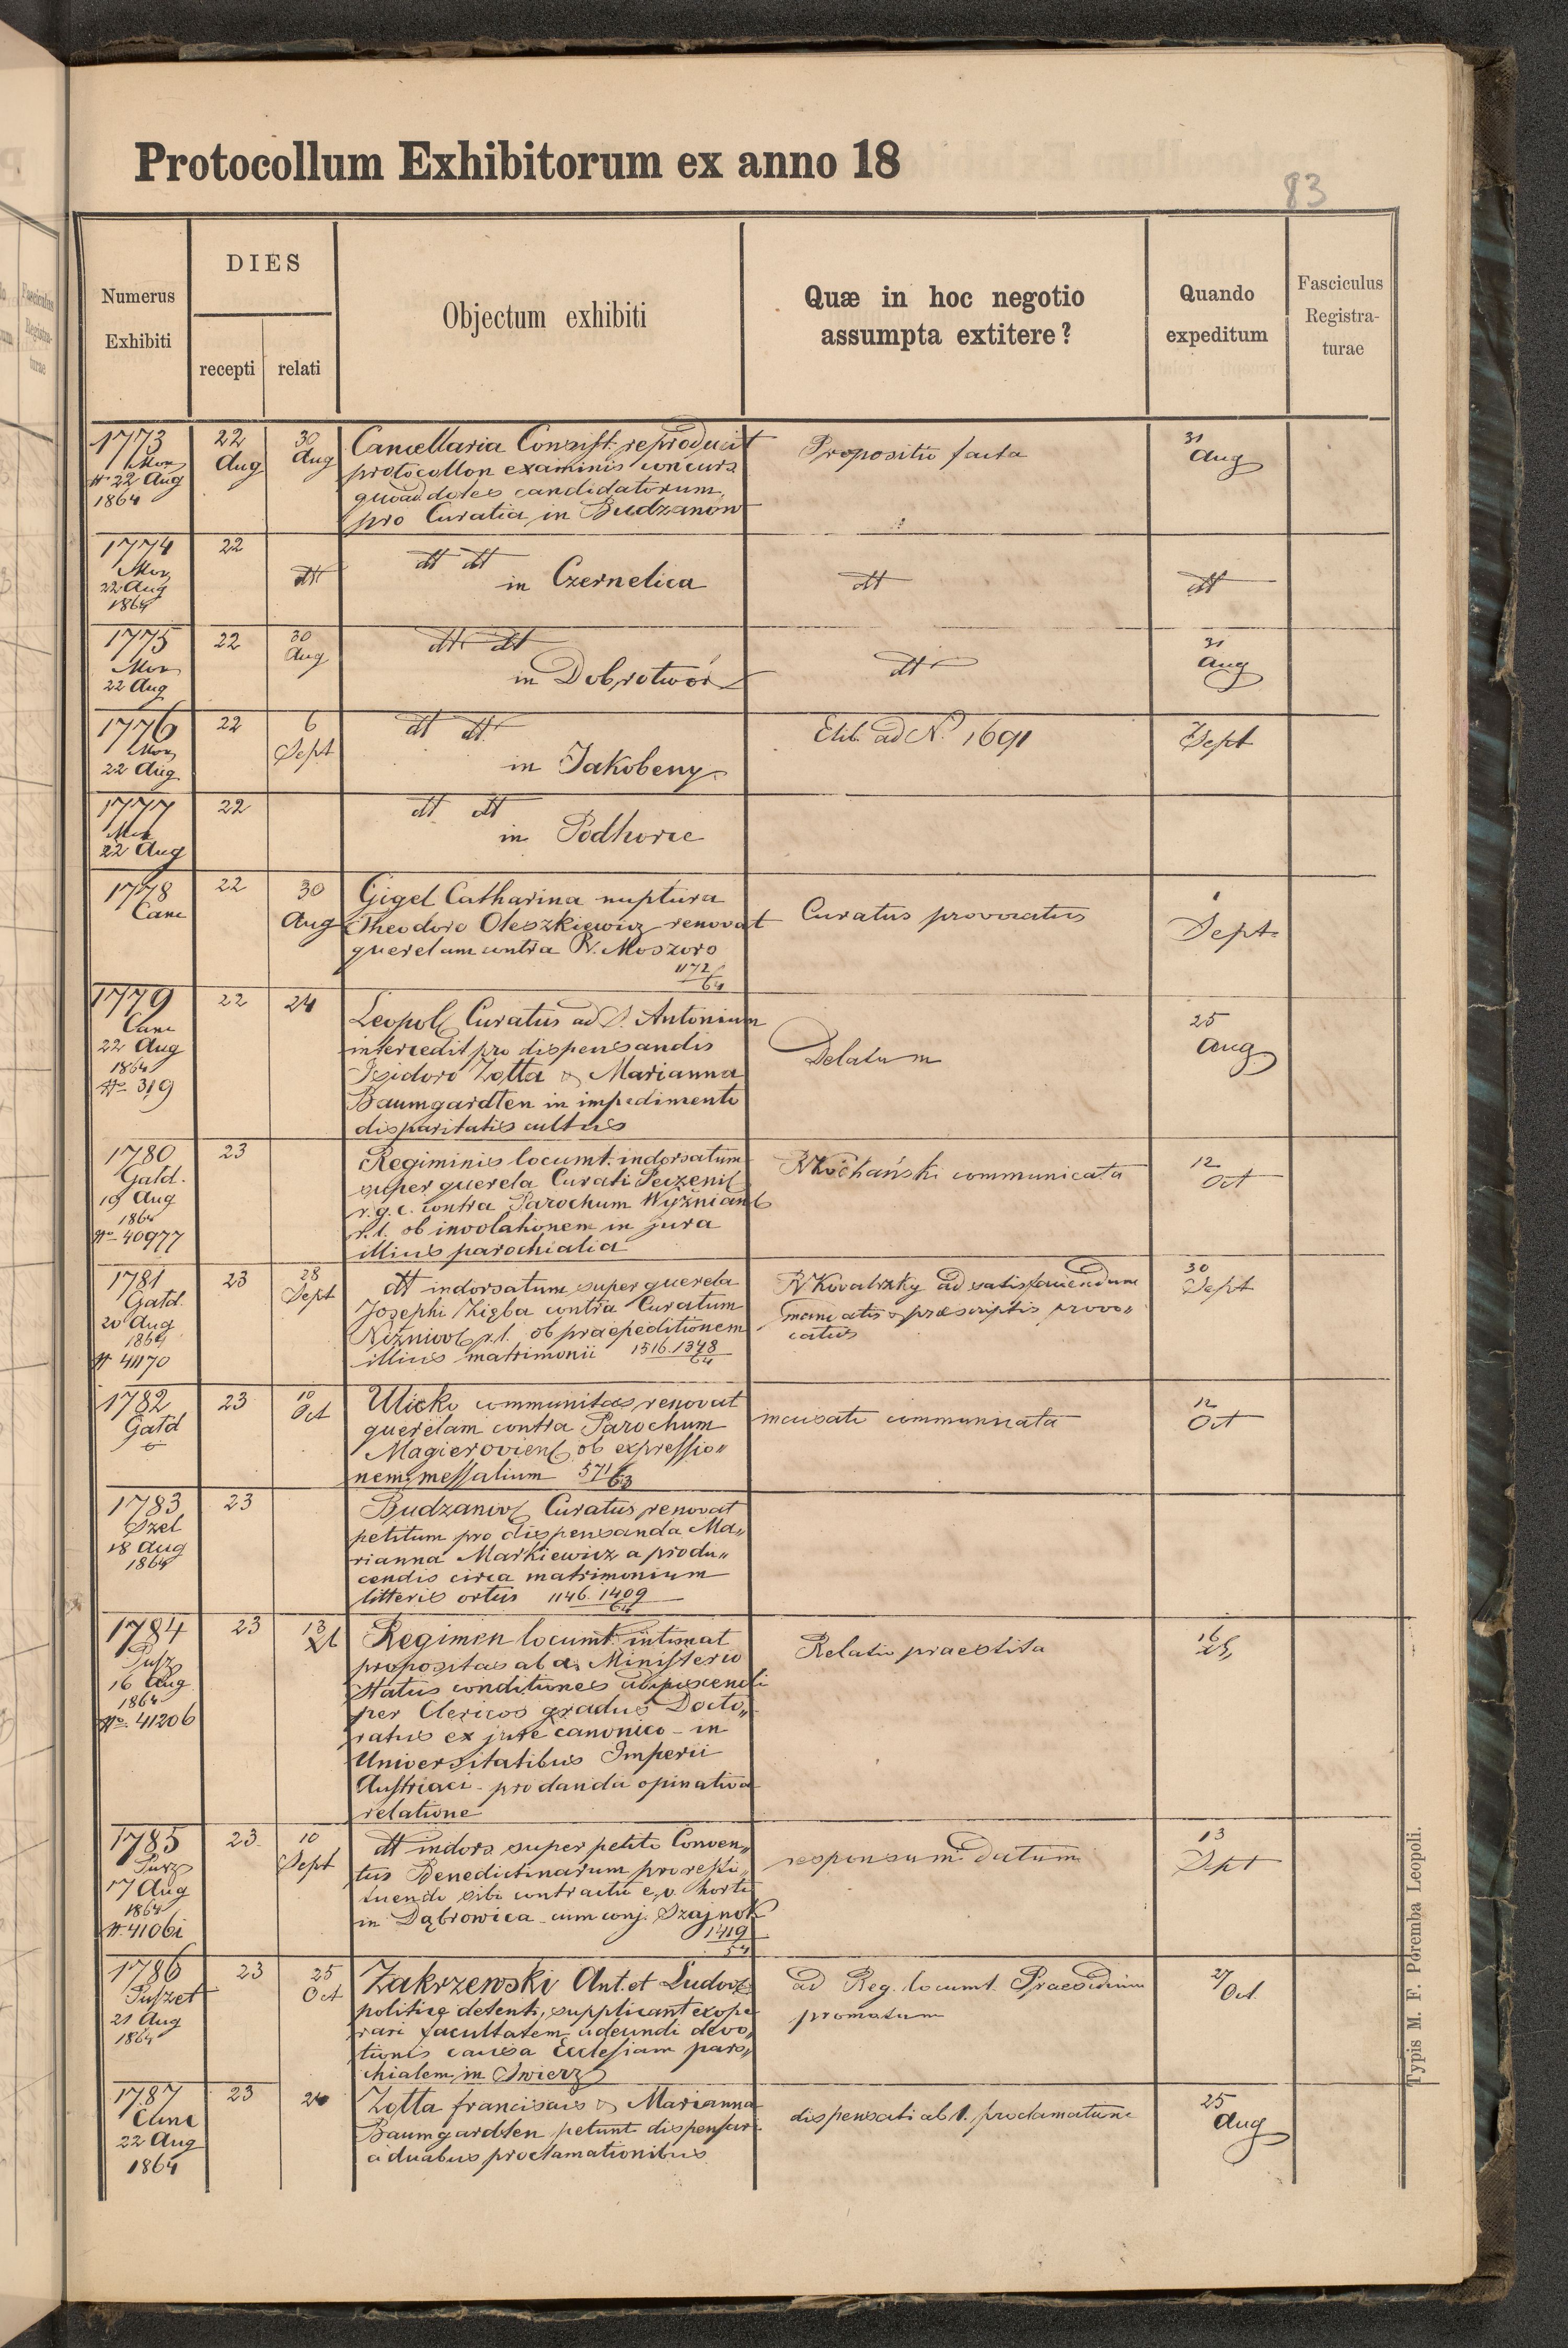 Protocollum Exhibitorum ex anno 18
83
Numerus Exhibiti
DIES
recepti
relati
Objectum exhibiti
Quæ in hoc negotio
assumpta extitere?
Quando
expeditum
Fasciculus
Registra-
turae
1773
22 Aug
1864
22
Aug
30
Aug
Cancellaria Consist. reproducit
protocollon examinis concurs.
quoad dotes candidatorum
pro Curatia in Budzanów
Propositio facta
31
Aug
1774
22 Aug
1864
22
dtt
dtt dtt
in Czernelica
dtt
dtt
1775
22 Aug
22
30
Aug
dtt dtt
in Dobrotwór
dtt
31
Aug
1776
22 Aug
22
6
Sept
dtt dtt
in Jakobeny
ad N. 1691
Sept
1777
22 Aug
22
dtt dtt
in Podhorce
1778
Canc
22
30
Aug
Gigel Catharina nuptura
Theodoro Oleszkiewicz renovat
querelam contra R. Moszoro
1172/64
Curatus provocatus
1
Sept
1779
Canc
22 Aug
1864
No 319
22
24
Leopol Curatus ad S. Antonium
intercedit pro dispensandis
Isidoro Zotta & Marianna
Baumgardten in impedimento
disparitatis cultus
Delatum
25
Aug
1780
Gatd.
19 Aug
1864
No 40977
23
Regiminis locumt. indorsatum
super querela Curati Peczeniż
r.g.c. contra Parochum Wyżnian
r.l. ob involationem in jura
illius parochialia
R Kochański communicata
12
Oct
1781
Gatd.
20 Aug
1864
N 41170
23
28
Sept
dtt indorsatum super querela
Josephi Zięba contra Curatum
Niżniow r.l. ob praepeditionem
illius matrimonii 1516.1348/64
R Kovalszky ad satisfaciendum
praescriptis provo„
catus
30
Sept
1782
Gatd
23
10
Oct
Ulicko communitas renovat
querelam contra Parochum
Magierovien ob expressio„
nem messalium 571/63
incusato communicata
12
Oct
1783
Szel
18 Aug
1864
23
Budzaniov Curatus renovat
petitum pro dispensanda Ma„
rianna Markiewicz a produ„
cendis circa matrimonium
litteris ortus 1146.1409/64
1784
16 Aug
1864
No. 41206
23
13
Regimen locumt. intimat
propositas ab a. Ministerio
Status conditiones adipiscendi
per Clericos gradus Docto„
ratus ex jure canonico - in
Universitatibus Imperii
Austriaci - pro danda opinativa
relatione
Relatio praestita
16
1785
17 Aug
1864
N. 41061
23
10
Sept
dtt indors super petito Conven„
tus Benedictinarum pro resti„
tuendo sibi contractu e.v. horti
in Dąbrowica cum conj. Szajnok
1419/54
responsum datum
13
Sept
1786
Puszet
21 Aug
1864
23
25
Oct
Zakrzewski Ant. et Ludov
politice detenti, supplicant exope
rari facultatem adeundi devo„
tionis causa Ecclesiam paro„
chialem in Swierz
ad Reg. locumt. Praesidium
promotum
27
Oct.
1787
22 Aug
1864
23
24
Zotta franciscus & Marianna
Baumgardten petunt dispensari
a duabus proclamationibus
dispensati ab 1. proclamatione
25
Aug
Typis M. F. Poremba Leopoli.